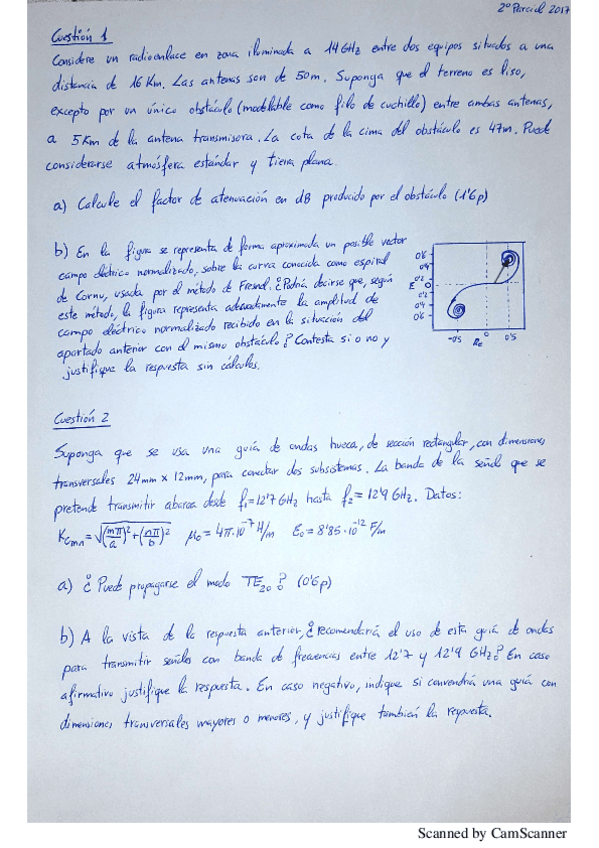 2º Parcial 2017
Cuestión 1
Considere un radioenlace en zona iluminada a 14GHz entre dos equipos situados a una
distancia de 16 Km. Las antenas son de 50m. Suponga que el terreno es liso,
excepto por un único obstáculo (modelable como filo de cuchillo) entre ambas antenas,
a 5Km de la antena transmisora. La cota de la cima del obstáculo es 47m. Puede
considerarse atmósfera estándar y tierra plana.
a) Calcule el factor de atenuación en dB producido por el obstáculo (1'6p)
b) En la figura se representa de forma aproximada un posible vector
campo eléctrico normalizado, sobre la curva conocida como espiral
de Cornu, usada por el método de Fresnel. ¿Podría decirse que, según
este método, la figura representa adecuadamente la amplitud de
campo eléctrico normalizado recibido en la situación del
apartado anterior con el mismo obstáculo? Contesta si o no y
justifique la respuesta sin cálculos.
0'6
0'4
0'2
E 0
0'2
0'4
0'6
-0'5 Re 0 0'5
Cuestión 2
Suponga que se usa una guía de ondas hueca, de sección rectangular, con dimensiones
transversales 24mm x 12mm, para conectar dos subsistemas. La banda de la señal que se
pretende transmitir abarca desde f₁=12'7 GHz hasta f₂ = 12'9 GHz. Datos:
Kcmn = √((mπ/a)²+(nπ/b)²) μ₀ = 4π·10⁻⁷ H/m ε₀ = 8'85·10⁻¹² F/m
a) ¿Puede propagarse el modo TE₂₀? (0'6p)
b) A la vista de la respuesta anterior, ¿recomendaría el uso de esta guía de ondas
para transmitir señales con banda de frecuencias entre 12'7 y 12'9 GHz? En caso
afirmativo justifique la respuesta. En caso negativo, indique si convendría una guía con
dimensiones transversales mayores o menores, y justifique también la respuesta.
Scanned by CamScanner